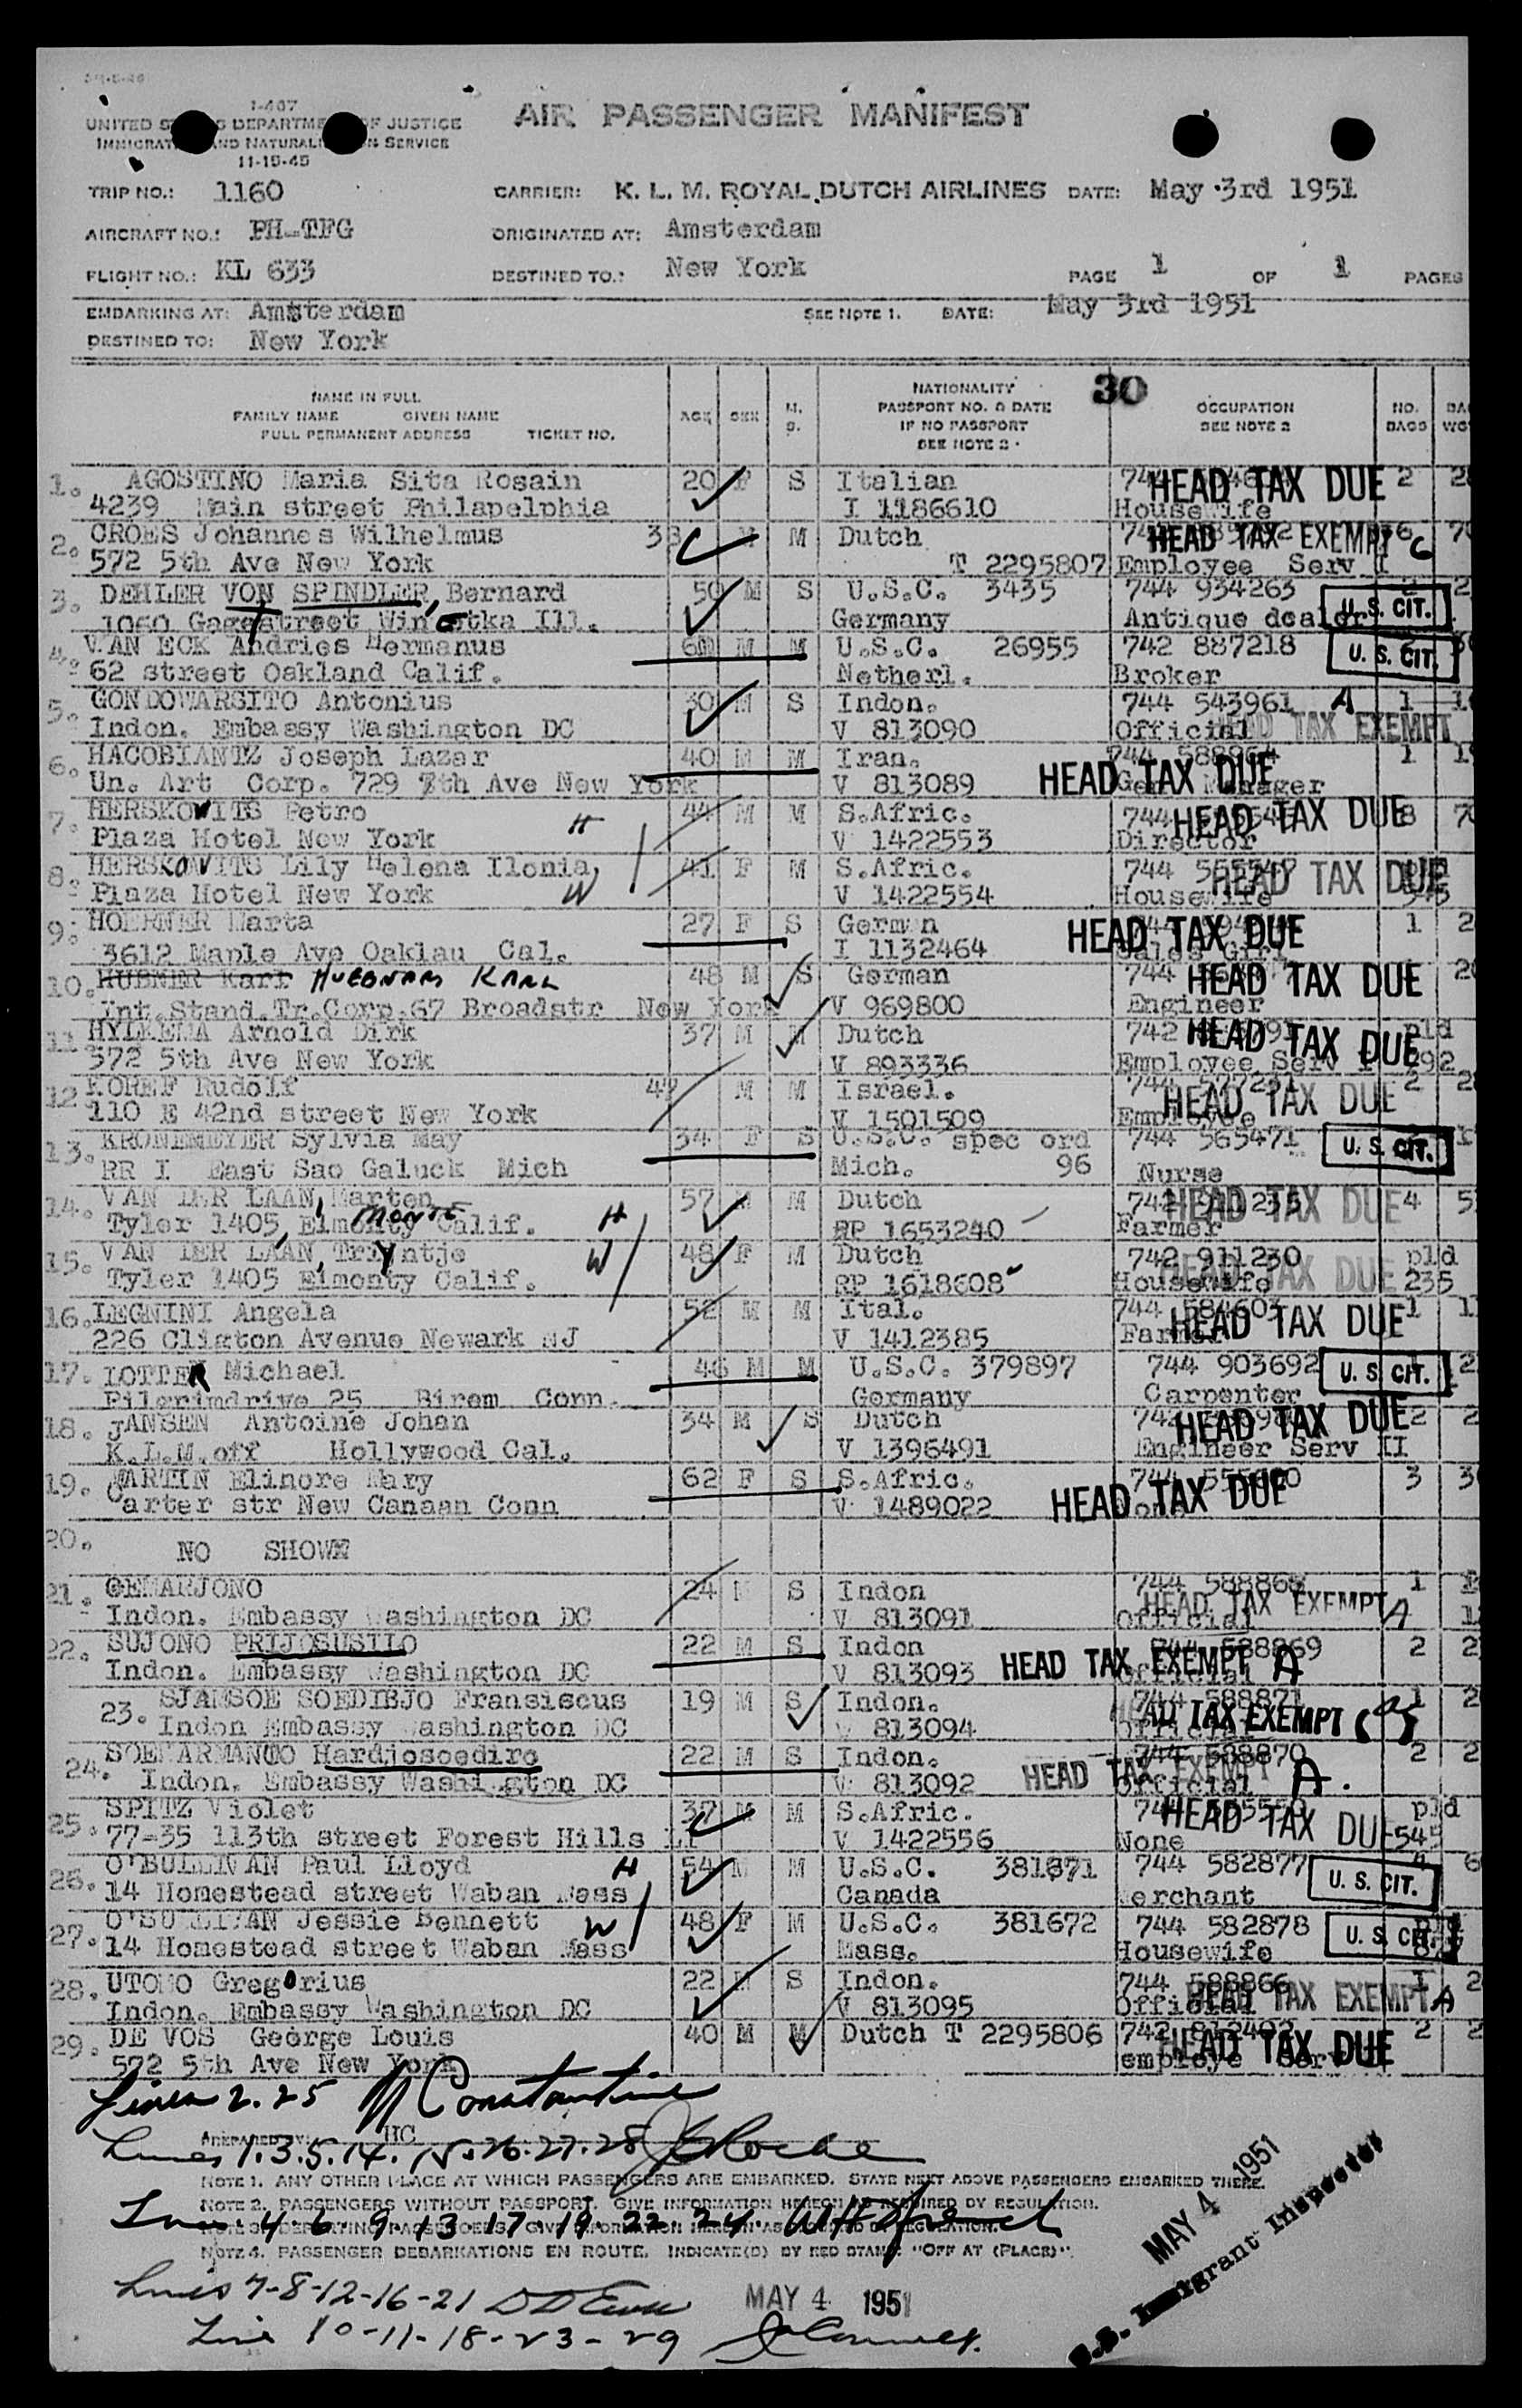 I-407
UNITED S S DEPARTME OF JUSTICE
IMMIGRAT AND NATURALI N SERVICE
11-15-45
AIR PASSENGER MANIFEST
TRIP NO.: 1160 CARRIER: K. L. M. ROYAL DUTCH AIRLINES DATE: May 3rd 1951
AIRCRAFT NO.: PH-TFG ORIGINATED AT: Amsterdam
FLIGHT NO.: KL 633 DESTINED TO.: New York PAGE 1 OF 1 PAGES
EMBARKING AT: Amsterdam SEE NOTE 1. DATE: May 3rd 1951
DESTINED TO: New York
30
NAME IN FULL NATIONALITY
FAMILY NAME GIVEN NAME AGE SEX M. PASSPORT NO. & DATE OCCUPATION NO.
FULL PERMANENT ADDRESS TICKET NO. S. IF NO PASSPORT SEE NOTE 2 BAGS
SEE NOTE 2
1. AGOSTINO Maria Sita Rosain 20 F S Italian 744 HEAD TAX DUE 2
4239 Main street Philapelphia I 1186610 Housewife
2. CROES Johannes Wilhelmus M M Dutch HEAD TAX EXEMPT 6
572 5th Ave New York T 2295807 Employee Serv I
3. DEHLER VON SPINDLER, Bernard 50 M S U.S.C. 3435 744 934263 U.S. CIT.
1060 Gagestreet Winetka Ill. Germany Antique dealer
4. VAN ECK Andries Hermanus M M U.S.C. 26955 742 887218 U. S. CIT.
62 street Oakland Calif. Netherl. Broker
5. GONDOWARSITO Antonius 30 M S Indon. 744 543961 A 1
Indon. Embassy Washington DC V 813090 Official HEAD TAX EXEMPT
6. HACOBIANTZ Joseph Lazar 40 M M Iran. 744 588964 1
Un. Art Corp. 729 7th Ave New York V 813089 HEAD TAX DUE Manager
7. HERSKOWITS Petro 44 M M S.Afric. 744 HEAD TAX DUE 8
Plaza Hotel New York H V 1422553 Director
8. HERSKOWITS Lily Helena Ilonia, 41 F M S.Afric. 744 HEAD TAX DUE
Plaza Hotel New York W V 1422554 Housewife
9. HOERNER Marta 27 F S German HEAD TAX DUE 1
3612 Maple Ave Oaklau Cal. I 1132464 Sales Girl
10. HUBNER Karl HUEBNARS KARL 48 M S German 744 HEAD TAX DUE
Int.Stand.Tr.Corp.67 Broadstr New York V 969800 Engineer
11 HYLKEMA Arnold Dirk 37 M M Dutch 742 HEAD TAX DUE pld
572 5th Ave New York V 893336 Employee Serv
12 KOREF Rudolf M M Israel. 744 577231 HEAD TAX DUE 2
110 E 42nd street New York V 1501509 Employee
13. KRONEMEYER Sylvia May 34 F S U.S.C. spec ord 744 565471 U. S. CIT.
RR I East Sao Galuck Mich Mich. 96 Nurse
14. VAN DER LAAN, Marten 57 M M Dutch 742 HEAD TAX DUE 4
Tyler 1405, Elmonty MONTE Calif. H RP 1653240 Farmer
15. VAN DER LAAN, Tryntje 48 F M Dutch 742 911230 HEAD TAX DUE pld
Tyler 1405 Elmonty Calif. W RP 1618608 Housewife 235
16. LEGNINI Angela 52 M M Ital. 744 584603 HEAD TAX DUE 1
226 Cligton Avenue Newark NJ V 1412385 Farmer
17. LOTTER Michael 46 M M U.S.C. 379897 744 903692 U. S. CIT.
Pilgrimdrive 25 Birem Conn. Germany Carpenter
18. JANSEN Antoine Johan 34 M S Dutch 742 HEAD TAX DUE 2
K.L.M.off Hollywood Cal. V 1396491 Engineer Serv II
19. MARTIN Elinore Mary 62 F S S.Afric. 744 HEAD TAX DUE 3
Carter str New Canaan Conn V 1489022 None
20. NO SHOW
21. OEMARJONO 24 M S Indon 744 588868 HEAD TAX EXEMPT A 1
Indon. Embassy Washington DC V 813091 Official
22. SUJONO PRIJOSUSILO 22 M S Indon 744 588869 2
Indon. Embassy Washington DC V 813093 HEAD TAX EXEMPT A Official
23. SJAMSOE SOEDIBJO Fransiscus 19 M S Indon. 744 588871 1
Indon Embassy Washington DC V 813094 Official HEAD TAX EXEMPT (a)
24. SOEMARMANTO Hardjosoediro 22 M S Indon. 744 588870 2
Indon. Embassy Washington DC V 813092 HEAD TAX EXEMPT Official A.
25. SPITZ Violet 37 M M S.Afric. HEAD TAX DUE pld
77-35 113th street Forest Hills LI V 1422556 None 545
26. O'SULLIVAN Paul Lloyd H 54 M M U.S.C. 381871 744 582877 U. S. CIT.
14 Homestead street Waban Mass Canada Merchant
27. O'SULLIVAN Jessie Bennett W 48 F M U.S.C. 381672 744 582878 U. S. CIT.
14 Homestead street Waban Mass Mass. Housewife
28. UTOMO Gregorius 22 M S Indon. 744 588866 HEAD TAX EXEMPT A 1
Indon. Embassy Washington DC V 813095 Official
29. DE VOS George Louis 40 M M Dutch T 2295806 742 HEAD TAX DUE 2
572 5th Ave New York employe Serv
Lines 2. 25 Constantine
PREPARED BY: HC
Lines 1. 3. 5. 14. 15. 26. 27. 28 Roche
NOTE 1. ANY OTHER PLACE AT WHICH PASSENGERS ARE EMBARKED. STATE NEXT ABOVE PASSENGERS EMBARKED THERE.
NOTE 2. PASSENGERS WITHOUT PASSPORT. GIVE INFORMATION HEREON AS REQUIRED BY REGULATION.
Lines 4. 6. 9. 13 17. 19. 22. 24. WH French
NOTE 4. PASSENGER DEBARKATIONS EN ROUTE. INDICATE(D) BY RED STAMP "OFF AT (PLACE)".
Lines 7-8-12-16-21 MAY 4 1951
Line 10-11-18-23-29
MAY 4 1951
U.S. Immigrant Inspector